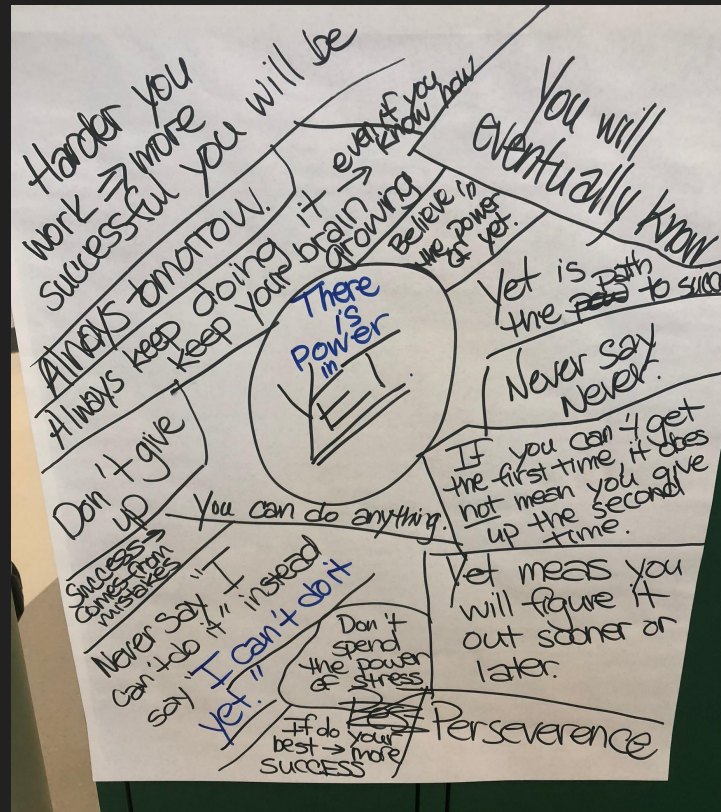 Harder you
work ⇒ more
successful you will be
Always tomorrow.
Always keep doing it → even if you
know how
keep your brain
growing
Believe in
the power
of yet.
You will
eventually know
Yet is
the path to succ
Never say
Never.
There
is
Power
in
YET
Don't give
up
You can do anything.
If you can't get
the first time, it does
not mean you give
up the second
time.
Success →
comes from
mistakes
Never say "I
can't do it" instead
say "I can't do it
yet."
Don't
spend
the power
of stress
Yet meas you
will figure it
out sooner or
later.
If do your
best → more
SUCCESS
Perseverence